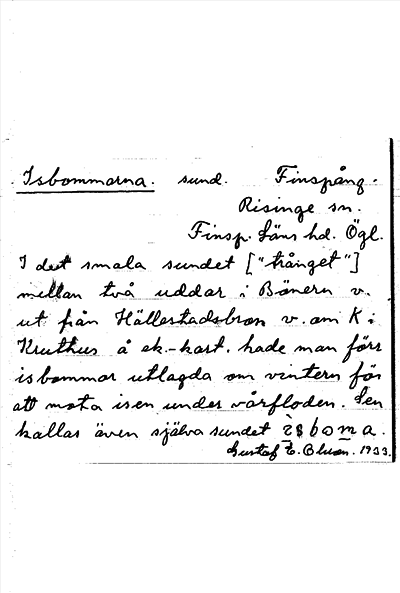 Isbommarna. sund. Finspång.
Risinge sn.
Finsp. Läns hd. Ögl.
I det smala sundet ["trånget"]
mellan två uddar i Bönern v.
ut från Hällestadsbron v. om K i
Kruthus å ek.-kart. hade man förr
isbommar utlagda om vintern för
att mota isen under vårfloden. Sen
kallas även själva sundet isboma.
Gustaf E. 1933.